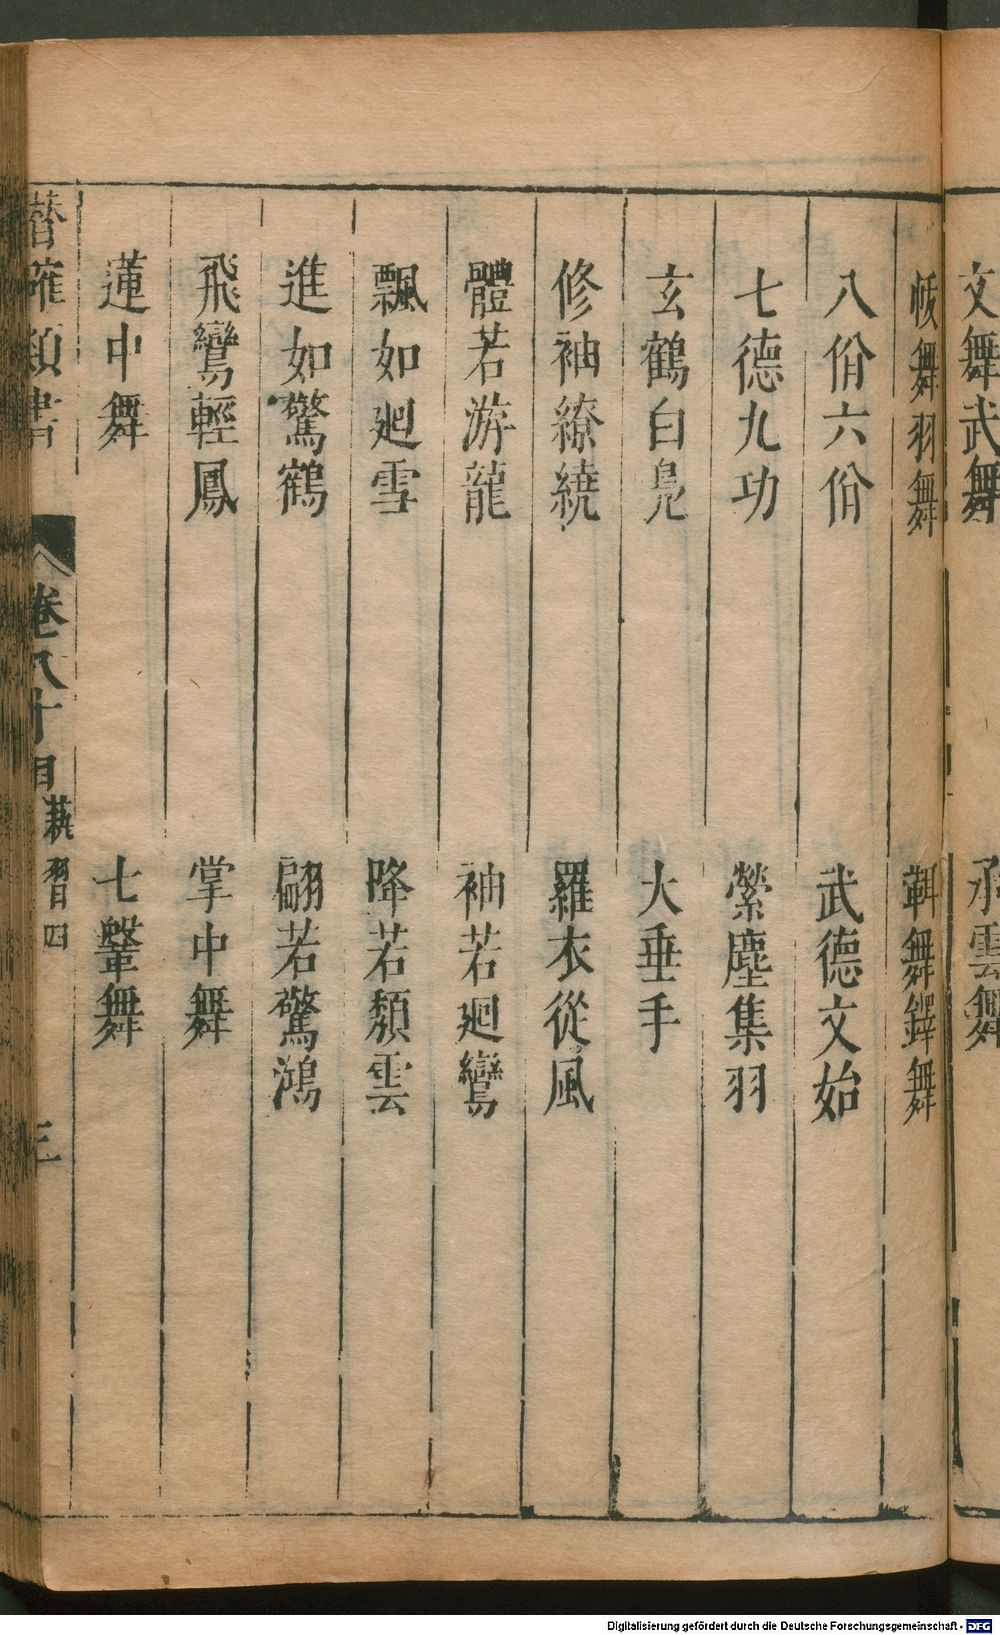 文舞武舞　承雲舞
帗舞羽舞　鞞舞鐸舞
八佾六佾　武德文始
七德九功　縈塵集羽
玄鶴白鳧　大垂手
修袖繚繞　羅衣從風
體若游龍　袖若迴鸞
飄如迴雪　降若頹雲
進如驚鶴　翩若驚鴻
飛鸞輕鳳　掌中舞
蓮中舞　七鞶舞
潛確類書　卷八十目　藝習四　三
Digitalisierung gefördert durch die Deutsche Forschungsgemeinschaft - DFG